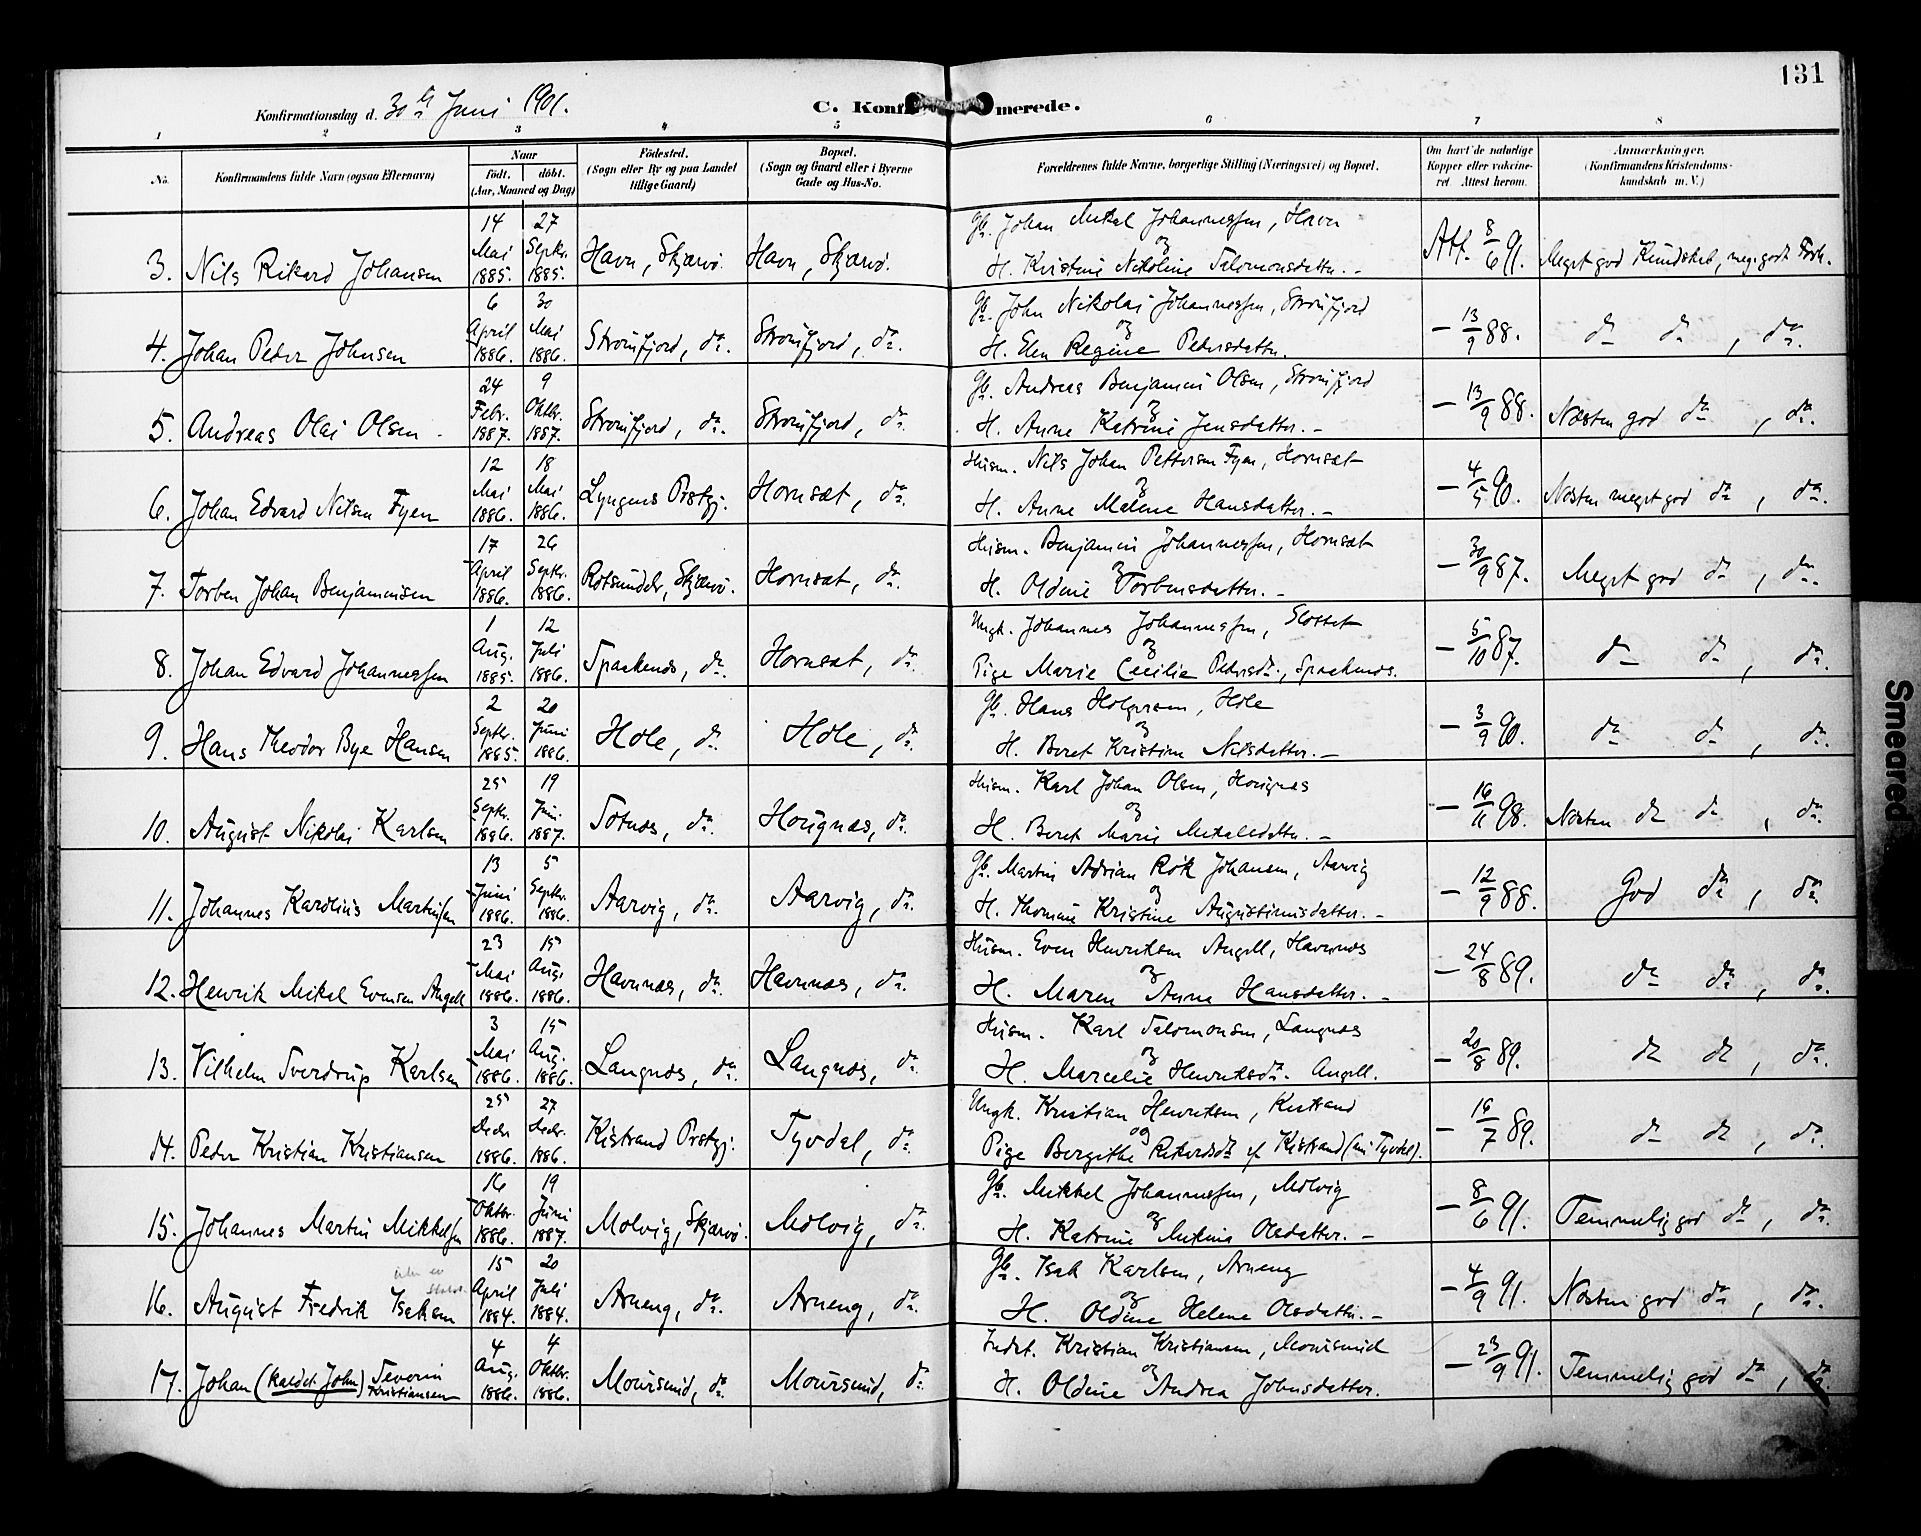 131
Konfirmationsdag d. 30te Juni 1901.
C. Konfirmerede.
1 2 3 4 5 6 7 8
No. Konfirmandens fulde Navn (ogsaa Efternavn) Naar født. døbt. (Aar, Maaned og Dag) Fødested. (Sogn eller By og paa Landet tillige Gaard) Bopæl. (Sogn og Gaard eller i Byerne Gade og Hus-No.) Forældrenes fulde Navne, borgerlige Stilling (Næringsvei) og Bopæl. Om havt de naturlige Kopper eller vakcineret Attest herom. Anmærkninger. (Konfirmandens Kristendomskundskab m. V.)
3. Nils Rikard Johansen 14 Mai 1885. 27 Septr. 1885. Havn, Skjærvø. Havn, Skjærvø. Gb. Johan Mikal Johannessen, Havn og H. Kristine Nikoline Salomonsdatter. - Att. 8/6 91. Meget god Kundskab, meg. godt Forh.
4. Johan Peder Johnsen 6 April 1886. 30 Mai 1886. Straumfjord, do. Straumfjord, do. Gb. John Nikolai Johannessen, Straumfjord og H. Elen Regine Pedersdatter. - 13/9 88. do do, do.
5. Andreas Olai Olsen 24 Febr. 1887. 9 Oktbr. 1887. Straumfjord, do. Straumfjord, do. Gb. Andreas Benjamin Olsen, Straumfjord og H. Anne Katrine Jensdatter. - - 13/9 88. Næsten god do, do.
6. Johan Edvard Nilsen Fyen 12 Mai 1886. 18 Mai 1886. Lyngens Prstgj. Hornsæt, do. Husm. Nils Johan Pettersen Fyen, Hornsæt og H. Anne Malene Hansdatter. - - 4/5 90. Næsten meget god do, do.
7. Torben Johan Benjaminsen 17 April 1886. 26 Septr. 1886. Rotsundelv, Skjærvø. Hornsæt, do. Husm. Benjamin Johannessen, Hornsæt og H. Oldine Torbensdatter. - - 30/9 87. Meget god do, do.
8. Johan Edvard Johannessen 1 Aug. 1885. 12 Juli 1886. Spaakenes, do. Hornsæt, do. Ungk. Johannes Johannessen, Slottet og Pige Marie Cecilie Pedersdr., Spaakenes. - 5/10 87. do do, do.
9. Hans Theodor Bye Hansen 2 Septr. 1885. 20 Juni 1886. Hole, do. Hole, do. Gb. Hans Holgersen, Hole og H. Beret Kristine Nilsdatter. - - 3/9 90. do do, do.
10. August Nikolai Karlsen 25 Septr. 1886. 19 Juni 1887. Sotnæs, do. Haugnæs, do. Husm. Karl Johan Olsen, Haugnæs og H. Beret Marie Mikalsdatter. - - 16/11 98. Næsten do do, do.
11. Johannes Karolius Martinsen 13 Juni 1886. 5 Septr. 1886. Aarvig, do. Aarvig, do. Gb. Martin Adrian Røk Johansen, Aarvig og H. Thomine Kristine Augustinusdatter. - - 12/9 88. God do, do.
12. Henrik Mikal Evensen Angell 23 Mai 1886. 15 Aug. 1886. Havnnæs, do. Havnnæs, do. Husm. Even Henriksen Angell, Havnnæs og H. Maren Anna Hansdatter. - - 24/8 89. do do, do.
13. Vilhelm Sverdrup Karlsen 3 Mai 1886. 15 Aug. 1886. Langnæs, do. Langnæs, do. Husm. Karl Salomonsen, Langnæs og H. Marcelie Henriksdr. Angell. - 20/8 89. do do, do.
14. Peder Kristian Kristiansen 25 Decbr. 1886. 27 Decbr. 1886. Kistrand Prstgj. Tyvdal, do. Ungk. Kristian Henriksen, Kistrand og Pige Bergithe Rikardsdr. af Kistrand (nu Tyvdal). - 16/7 89. do do, do.
15. Johannes Martin Mikkelsen 16 Oktbr. 1886. 19 Juni 1887. Molvig, Skjærvø. Molvig, do. Gb. Mikkel Johannessen, Molvig og H. Katrine Mikkine Olsdatter. - - 8/6 91. Temmelig god do, do.
16. August Fredrik Isaksen 15 April 1884. 20 Juli 1884. Arneng, do. Arneng, do. Gb. Isak Karlsen, Arneng og H. Oldine Helene Olsdatter. - - 4/9 91. Næsten god do, do.
17. Johan (kaldet John) Severin Kristiansen 4 Aug. 1886. 4 Oktbr. 1886. Maursund, do. Maursund, do. Indst. Kristian Kristiansen, Maursund og H. Oldine Andrea Johnsdatter. - 23/9 91. Temmelig god do, do.
Smeared